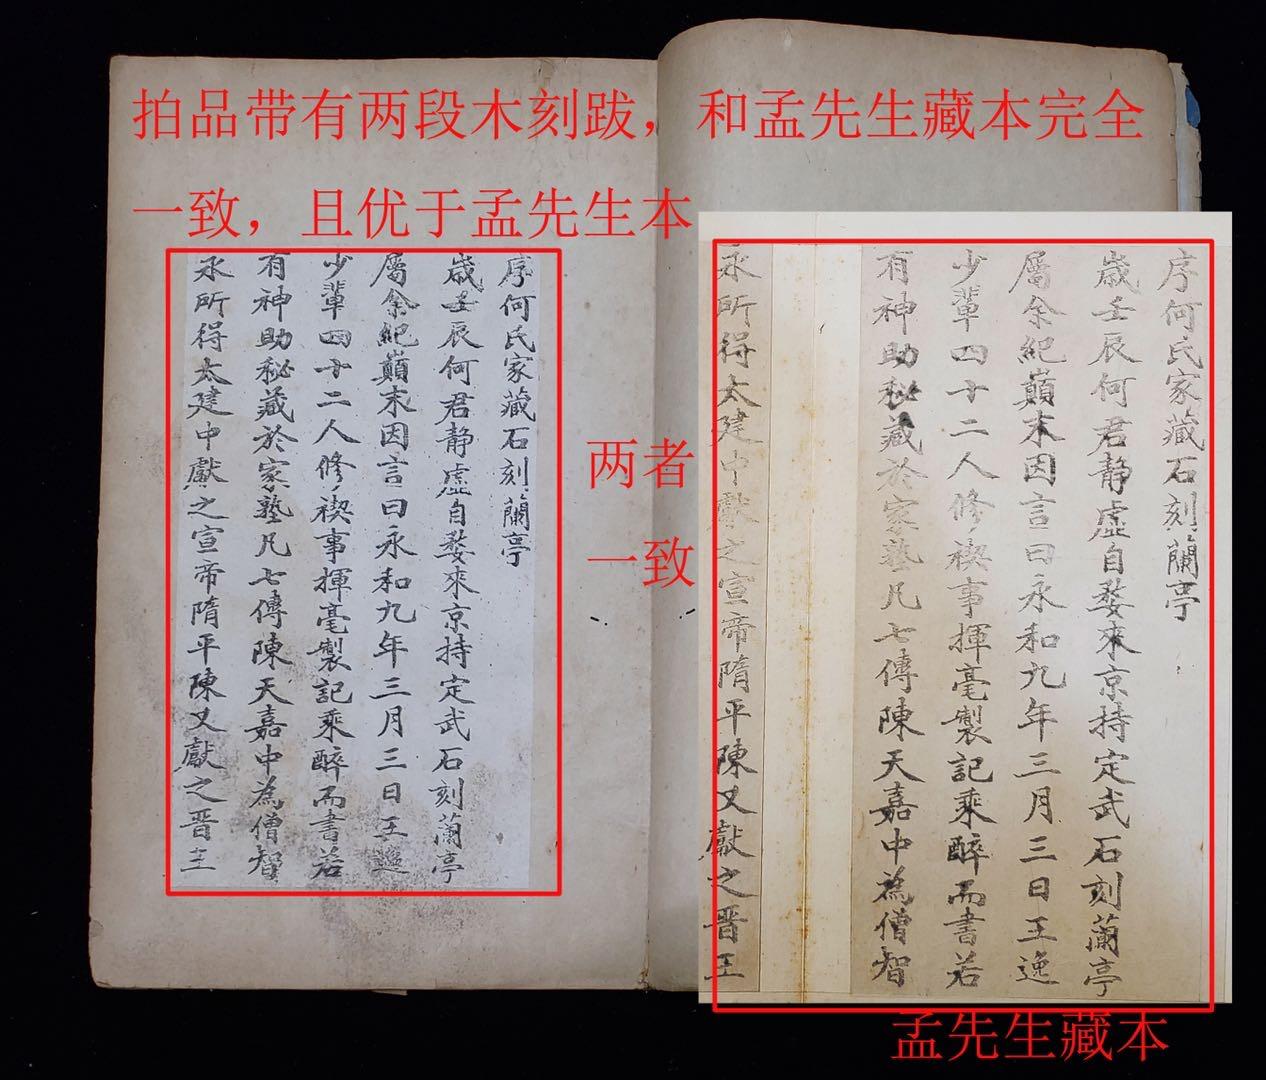 拍品带有两段木刻跋，和孟先生藏本完全
一致，且优于孟先生本
序何氏家藏石刻蘭亭
歲壬辰何君静虛自婺來京持定武石刻蘭亭
屬余紀巔末因言曰永和九年三月三日王逸
少輩四十二人修禊事揮毫製記乘醉而書若
有神助秘藏於家塾凡七傳陳天嘉中為僧智
永所得太建中獻之宣帝隋平陳又獻之晋王
两者
一致
序何氏家藏石刻蘭亭
歲壬辰何君静虛自婺來京持定武石刻蘭亭
屬余紀巔末因言曰永和九年三月三日王逸
少輩四十二人修禊事揮毫製記乘醉而書若
有神助秘藏於家塾凡七傳陳天嘉中為僧智
永所得太建中獻之宣帝隋平陳又獻之晋王
孟先生藏本